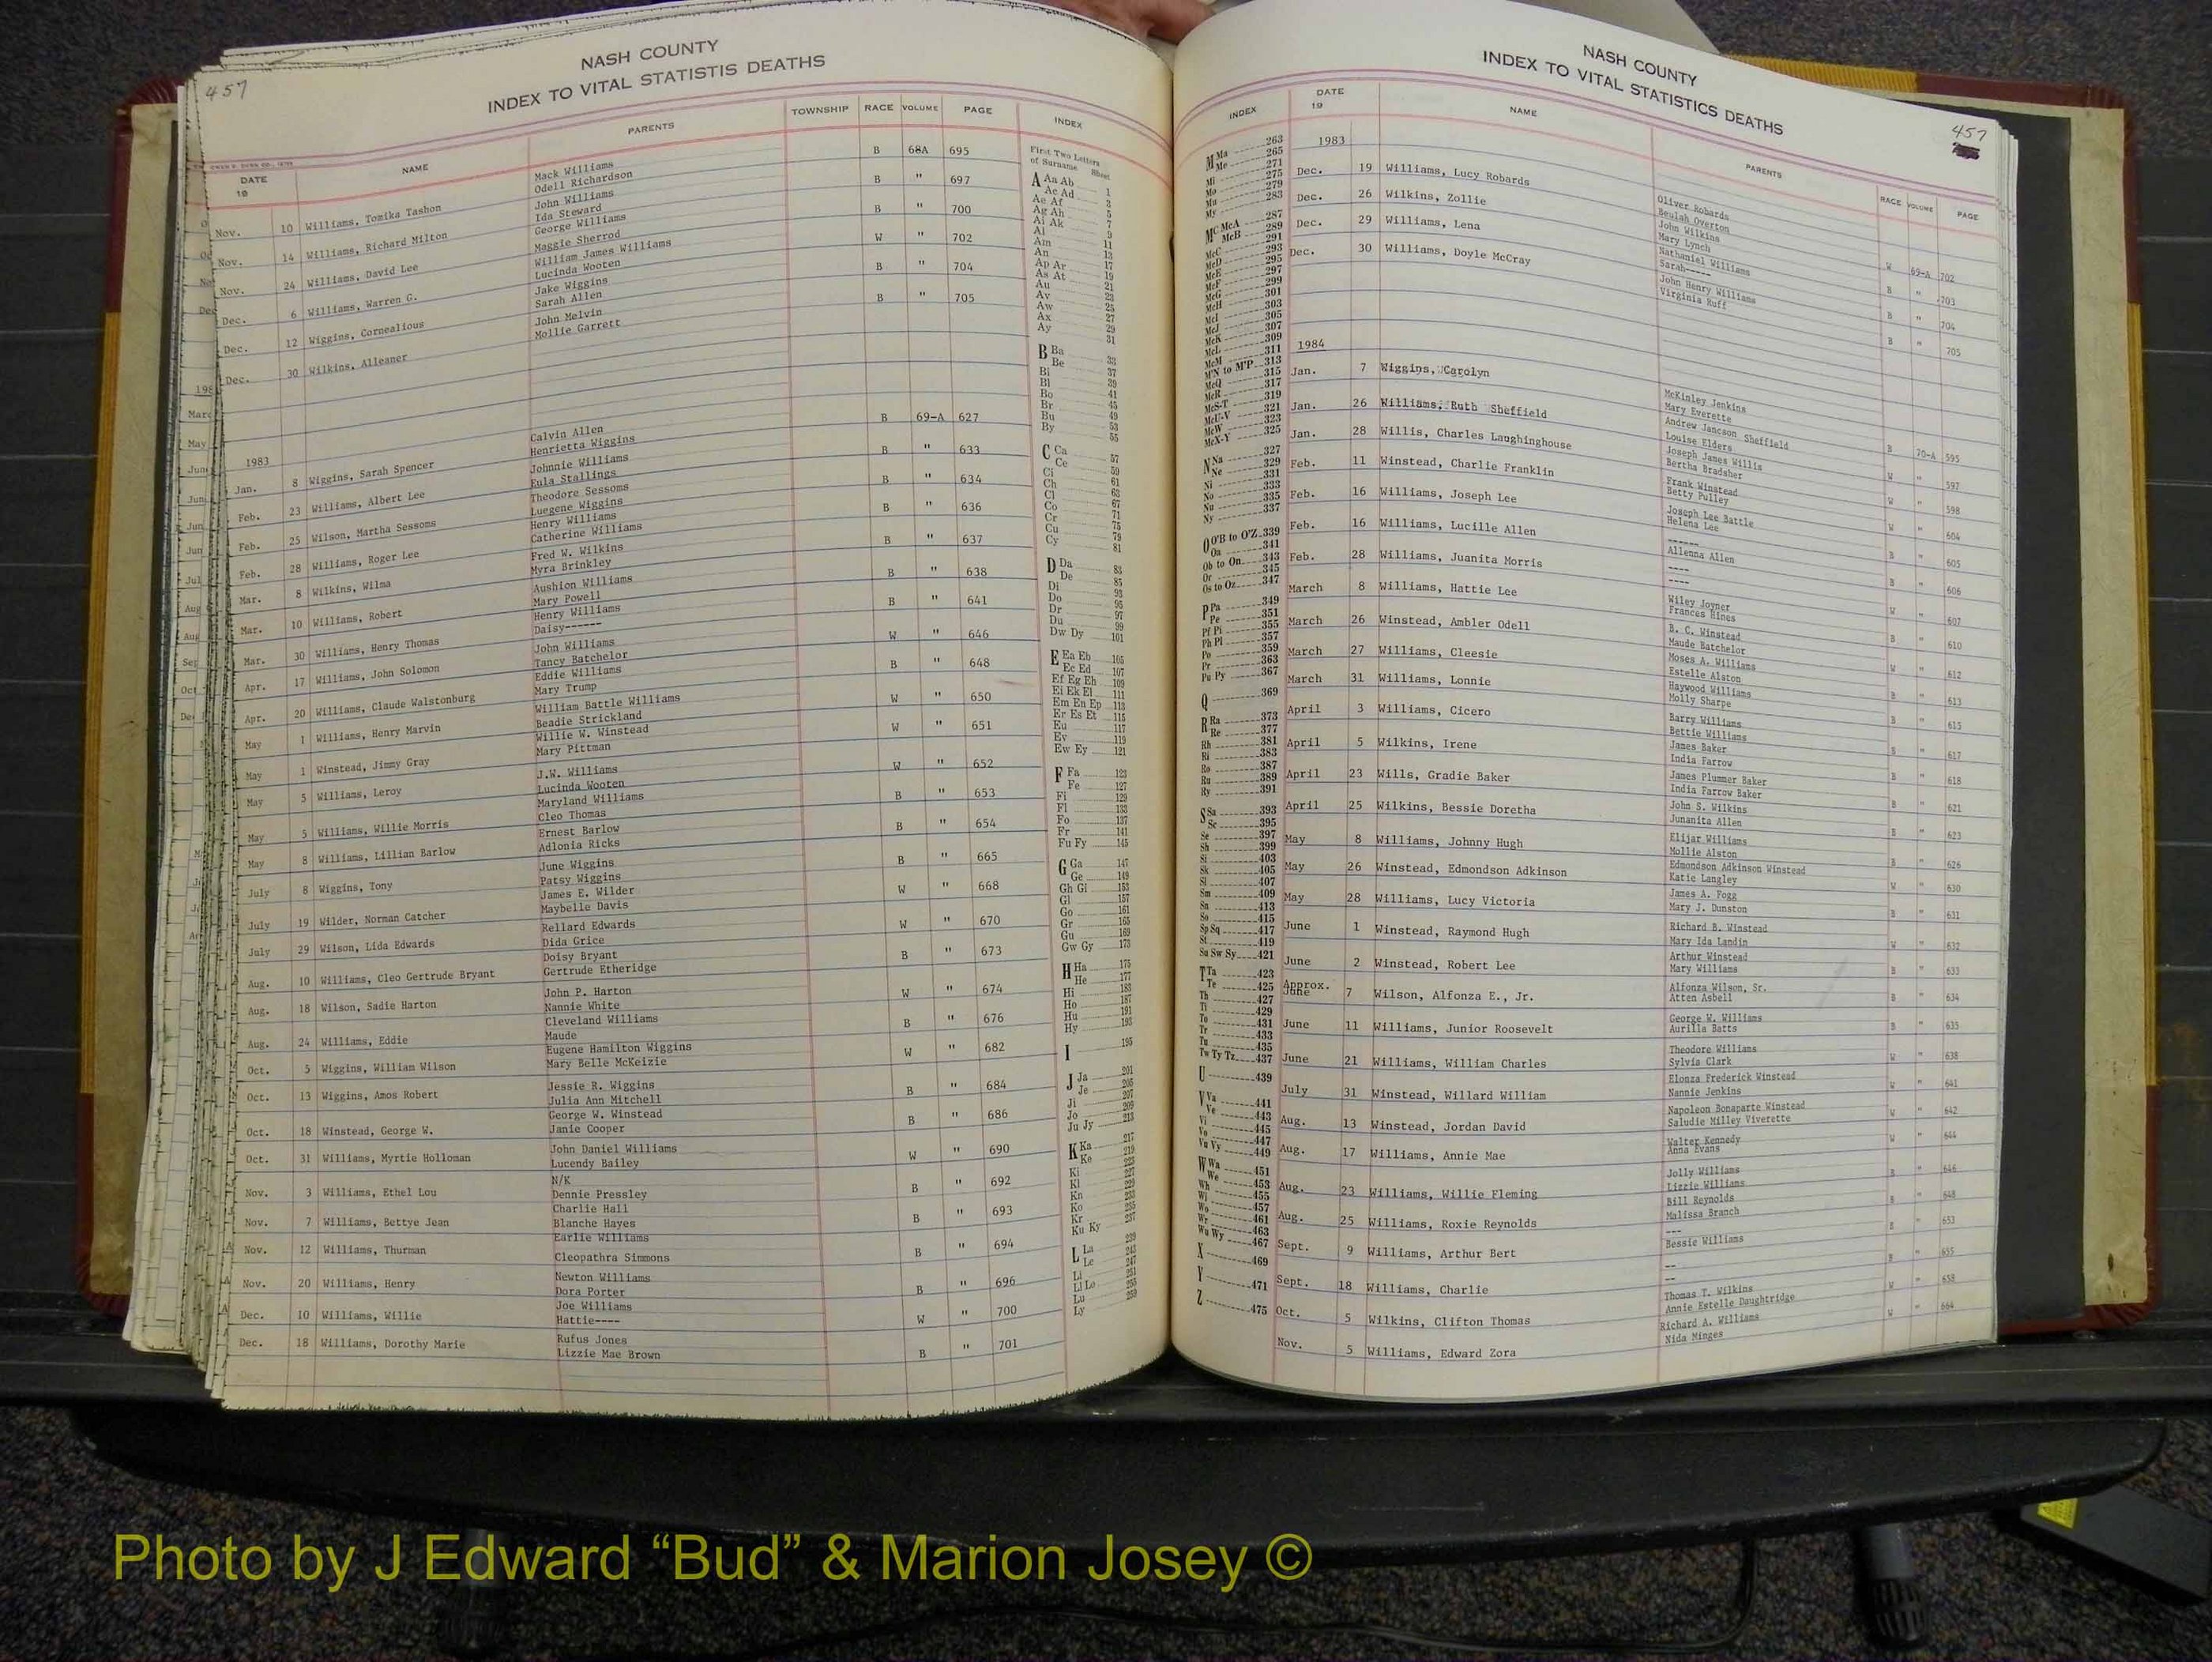 457
NASH COUNTY
INDEX TO VITAL STATISTIS DEATHS
DATE 19 NAME PARENTS TOWNSHIP RACE VOLUME PAGE INDEX
Nov. 10 Williams, Tomika Tashon Mack Williams B 68A 695
Odell Richardson
Nov. 14 Williams, Richard Milton John Williams B " 697
Ida Steward
Nov. 24 Williams, David Lee George Williams B " 700
Maggie Sherrod
Dec. 6 Williams, Warren G. William James Williams W " 702
Lucinda Wooten
Dec. 12 Wiggins, Cornealious Jake Wiggins B " 704
Sarah Allen
Dec. 30 Wilkins, Alleaner John Melvin B " 705
Mollie Garrett
1983
Jan. 8 Wiggins, Sarah Spencer Calvin Allen B 69-A 627
Henrietta Wiggins
Feb. 23 Williams, Albert Lee Johnnie Williams B " 633
Eula Stallings
Feb. 25 Wilson, Martha Sessoms Theodore Sessoms B " 634
Luegene Wiggins
Feb. 28 Williams, Roger Lee Henry Williams B " 636
Catherine Williams
Mar. 8 Wilkins, Wilma Fred W. Wilkins B " 637
Myra Brinkley
Mar. 10 Williams, Robert Aushion Williams B " 638
Mary Powell
Mar. 30 Williams, Henry Thomas Henry Williams B " 641
Daisy------
Apr. 17 Williams, John Solomon John Williams W " 646
Tancy Batchelor
Apr. 20 Williams, Claude Walstonburg Eddie Williams B " 648
Mary Trump
May 1 Williams, Henry Marvin William Battle Williams W " 650
Beadie Strickland
May 1 Winstead, Jimmy Gray Willie W. Winstead W " 651
Mary Pittman
May 5 Williams, Leroy J.W. Williams W " 652
Lucinda Wooten
May 5 Williams, Willie Morris Maryland Williams B " 653
Cleo Thomas
May 8 Williams, Lillian Barlow Ernest Barlow B " 654
Adlonia Ricks
July 8 Wiggins, Tony June Wiggins B " 665
Patsy Wiggins
July 19 Wilder, Norman Catcher James E. Wilder W " 668
Maybelle Davis
July 29 Wilson, Lida Edwards Rellard Edwards W " 670
Dida Grice
Aug. 10 Williams, Cleo Gertrude Bryant Doisy Bryant B " 673
Gertrude Etheridge
Aug. 18 Wilson, Sadie Harton John P. Harton W " 674
Nannie White
Aug. 24 Williams, Eddie Cleveland Williams B " 676
Maude
Oct. 5 Wiggins, William Wilson Eugene Hamilton Wiggins W " 682
Mary Belle McKeizie
Oct. 13 Wiggins, Amos Robert Jessie R. Wiggins B " 684
Julia Ann Mitchell
Oct. 18 Winstead, George W. George W. Winstead B " 686
Janie Cooper
Oct. 31 Williams, Myrtie Holloman John Daniel Williams W " 690
Lucendy Bailey
Nov. 3 Williams, Ethel Lou N/K B " 692
Dennie Pressley
Nov. 7 Williams, Bettye Jean Charlie Hall B " 693
Blanche Hayes
Nov. 12 Williams, Thurman Earlie Williams B " 694
Cleopathra Simmons
Nov. 20 Williams, Henry Newton Williams B " 696
Dora Porter
Dec. 10 Williams, Willie Joe Williams W " 700
Hattie----
Dec. 18 Williams, Dorothy Marie Rufus Jones B " 701
Lizzie Mae Brown
First Two Letters
of Surname Sheet
A Aa Ab 1
Ac Ad 3
Ae Af 5
Ag Ah 7
Ai Ak 9
Al 11
Am 13
An 17
Ap Ar 19
As At 21
Au 23
Av 25
Aw 27
Ax 29
Ay 31
B Ba 33
Be 37
Bi 39
Bl 41
Bo 45
Br 49
Bu 53
By 55
C Ca 57
Ce 59
Ci 61
Ch 63
Cl 67
Co 71
Cr 75
Cu 79
Cy 81
D Da 83
De 85
Di 93
Do 95
Dr 97
Du 99
Dw Dy 101
E Ea Eb 105
Ec Ed 107
Ef Eg Eh 109
Ei Ek El 111
Em En Ep 113
Er Es Et 115
Eu 117
Ev 119
Ew Ey 121
F Fa 123
Fe 127
Fi 129
Fl 133
Fo 137
Fr 141
Fu Fy 145
G Ga 147
Ge 149
Gh Gi 153
Gl 157
Go 161
Gr 165
Gu 169
Gw Gy 173
H Ha 175
He 177
Hi 183
Ho 187
Hu 191
Hy 193
I 195
J Ja 201
Je 205
Ji 207
Jo 209
Ju Jy 213
K Ka 217
Ke 219
Ki 223
Kl 227
Kn 229
Ko 233
Kr 235
Ku Ky 237
L La 239
Le 243
Li 251
Ll Lo 255
Lu 259
Ly
NASH COUNTY
INDEX TO VITAL STATISTICS DEATHS
457
INDEX DATE 19 NAME PARENTS RACE VOLUME PAGE
M Ma 263
Me 265
Mi 271
Mo 275
Mu 279
My 283
Mc McA 287
McB 289
McC 291
McD 293
McE 295
McF 297
McG 299
McH 301
McI 303
McJ 305
McK 307
McL 309
McM 311
M'N to M'P 313
McQ 315
McR 317
McS-T 319
McU-V 321
McW 323
McX-Y 325
N Na 327
Ne 329
Ni 331
No 333
Nu 335
Ny 337
O O'B to O'Z 339
Oa 341
Ob to On 343
Or 345
Os to Oz 347
P Pa 349
Pe 351
Pf Pi 355
Ph Pl 357
Po 359
Pr 363
Pu Py 367
Q 369
R Ra 373
Re 377
Rh 381
Ri 383
Ro 387
Ru 389
Ry 391
S Sa 393
Sc 395
Se 397
Sh 399
Si 403
Sk 405
Sl 407
Sm 409
Sn 413
So 415
Sp Sq 417
St 419
Su Sw Sy 421
T Ta 423
Te 425
Th 427
Ti 429
To 431
Tr 433
Tu 435
Tw Ty Tz 437
U 439
V Va 441
Ve 443
Vi 445
Vo 447
Vu Vy 449
W Wa 451
We 453
Wh 455
Wi 457
Wo 461
Wr 463
Wu Wy 467
X 469
Y 471
Z 475
1983
Dec. 19 Williams, Lucy Robards Oliver Robards W 69-A 702
Beulah Overton
Dec. 26 Wilkins, Zollie John Wilkins B " 703
Mary Lynch
Dec. 29 Williams, Lena Nathaniel Williams B " 704
Sarah-----
Dec. 30 Williams, Doyle McCray John Henry Williams B " 705
Virginia Ruff
1984
Jan. 7 Wiggins, Carolyn McKinley Jenkins B 70-A 595
Mary Everette
Jan. 26 Williams, Ruth Sheffield Andrew Jancson Sheffield W " 597
Louise Elders
Jan. 28 Willis, Charles Laughinghouse Joseph James Willis W " 598
Bertha Bradsher
Feb. 11 Winstead, Charlie Franklin Frank Winstead W " 604
Betty Pulley
Feb. 16 Williams, Joseph Lee Joseph Lee Battle B " 605
Helena Lee
Feb. 16 Williams, Lucille Allen ------ B " 606
Allenna Allen
Feb. 28 Williams, Juanita Morris ---- W " 607
----
March 8 Williams, Hattie Lee Wiley Joyner B " 610
Frances Hines
March 26 Winstead, Ambler Odell B. C. Winstead W " 612
Maude Batchelor
March 27 Williams, Cleesie Moses A. Williams B " 613
Estelle Alston
March 31 Williams, Lonnie Haywood Williams B " 615
Molly Sharpe
April 3 Williams, Cicero Barry Williams B " 617
Bettie Williams
April 5 Wilkins, Irene James Baker B " 618
India Farrow
April 23 Wills, Gradie Baker James Plummer Baker B " 621
India Farrow Baker
April 25 Wilkins, Bessie Doretha John S. Wilkins B " 623
Junanita Allen
May 8 Williams, Johnny Hugh Elijar Williams B " 626
Mollie Alston
May 26 Winstead, Edmondson Adkinson Edmondson Adkinson Winstead W " 630
Katie Langley
May 28 Williams, Lucy Victoria James A. Fogg B " 631
Mary J. Dunston
June 1 Winstead, Raymond Hugh Richard B. Winstead W " 632
Mary Ida Landin
June 2 Winstead, Robert Lee Arthur Winstead B " 633
Mary Williams
Approx.
June 7 Wilson, Alfonza E., Jr. Alfonza Wilson, Sr. B " 634
Atten Asbell
June 11 Williams, Junior Roosevelt George W. Williams B " 635
Aurilla Batts
June 21 Williams, William Charles Theodore Williams W " 638
Sylvia Clark
July 31 Winstead, Willard William Elonza Frederick Winstead W " 641
Nannie Jenkins
Aug. 13 Winstead, Jordan David Napoleon Bonaparte Winstead W " 642
Saludie Milley Viverette
Aug. 17 Williams, Annie Mae Walter Kennedy W " 644
Anna Evans
Aug. 23 Williams, Willie Fleming Jolly Williams B " 646
Lizzie Williams
Aug. 25 Williams, Roxie Reynolds Bill Reynolds B " 648
Malissa Branch
Sept. 9 Williams, Arthur Bert --- B " 653
Bessie Williams
Sept. 18 Williams, Charlie -- B " 655
--
Oct. 5 Wilkins, Clifton Thomas Thomas T. Wilkins W " 658
Annie Estelle Daughtridge
Nov. 5 Williams, Edward Zora Richard A. Williams W " 664
Nida Minges
Photo by J Edward “Bud” & Marion Josey ©